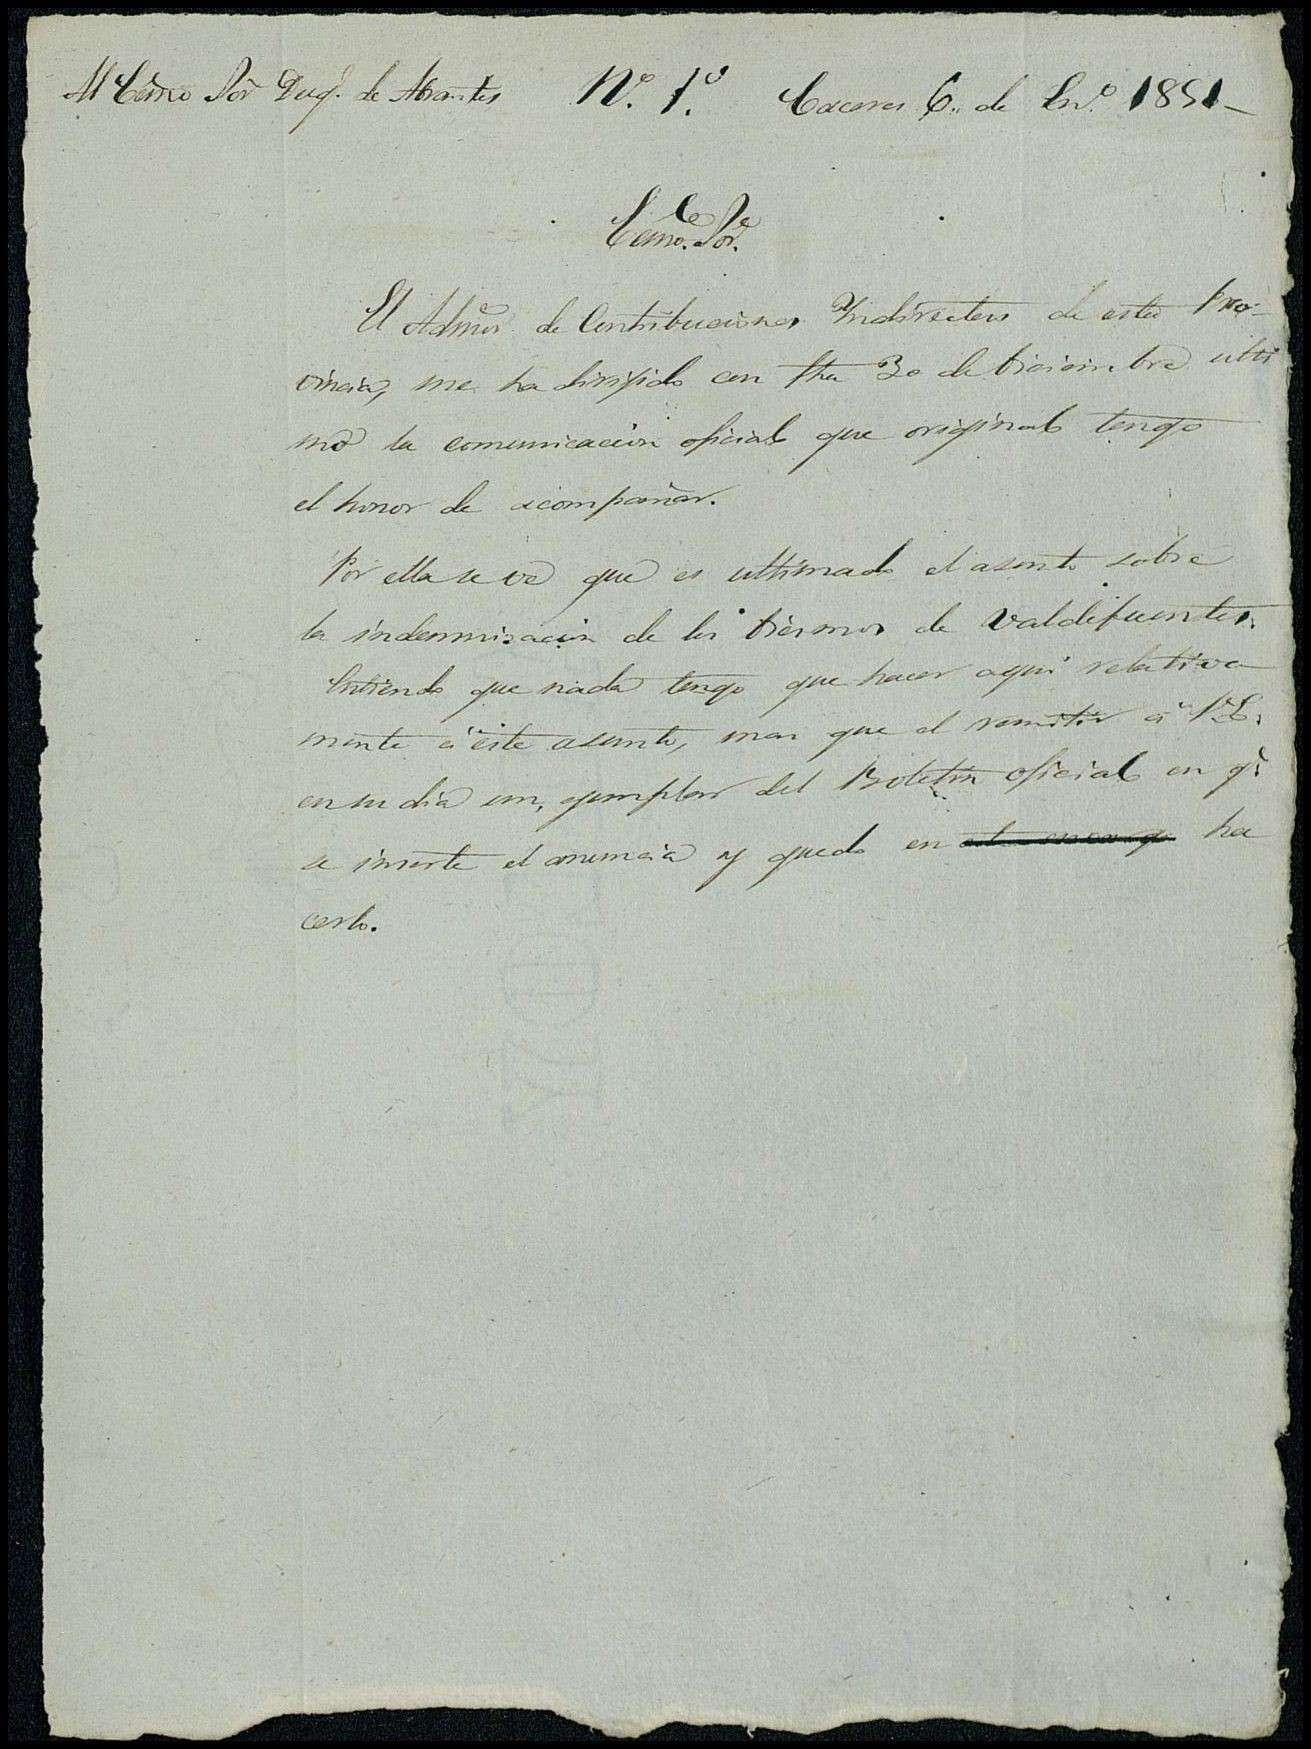 Al Exmo Sor Duq. de Abrantes Nº. 1º. Caceres 6.. de En.º 1851-
Exmo. Sor.
El Admor. de Contribuciones Yndirectas de esta Pro-
vincia, me ha dirijido con fha 30 de Diciembre ulti
mo la comunicacion oficial que original tengo
el honor de acompañar.
Por ella se ve que es ultimado el asunto sobre
la indemnisacion de los Diesmos de Valdefuentes.
Entiendo que nada tengo que hacer aqui relativa
mente á este asunto, mas que el remitir á V.E.
en su dia un, ejemplar del Boletin oficial en q.
se inserte el anuncia y quedo en ha
cerlo.